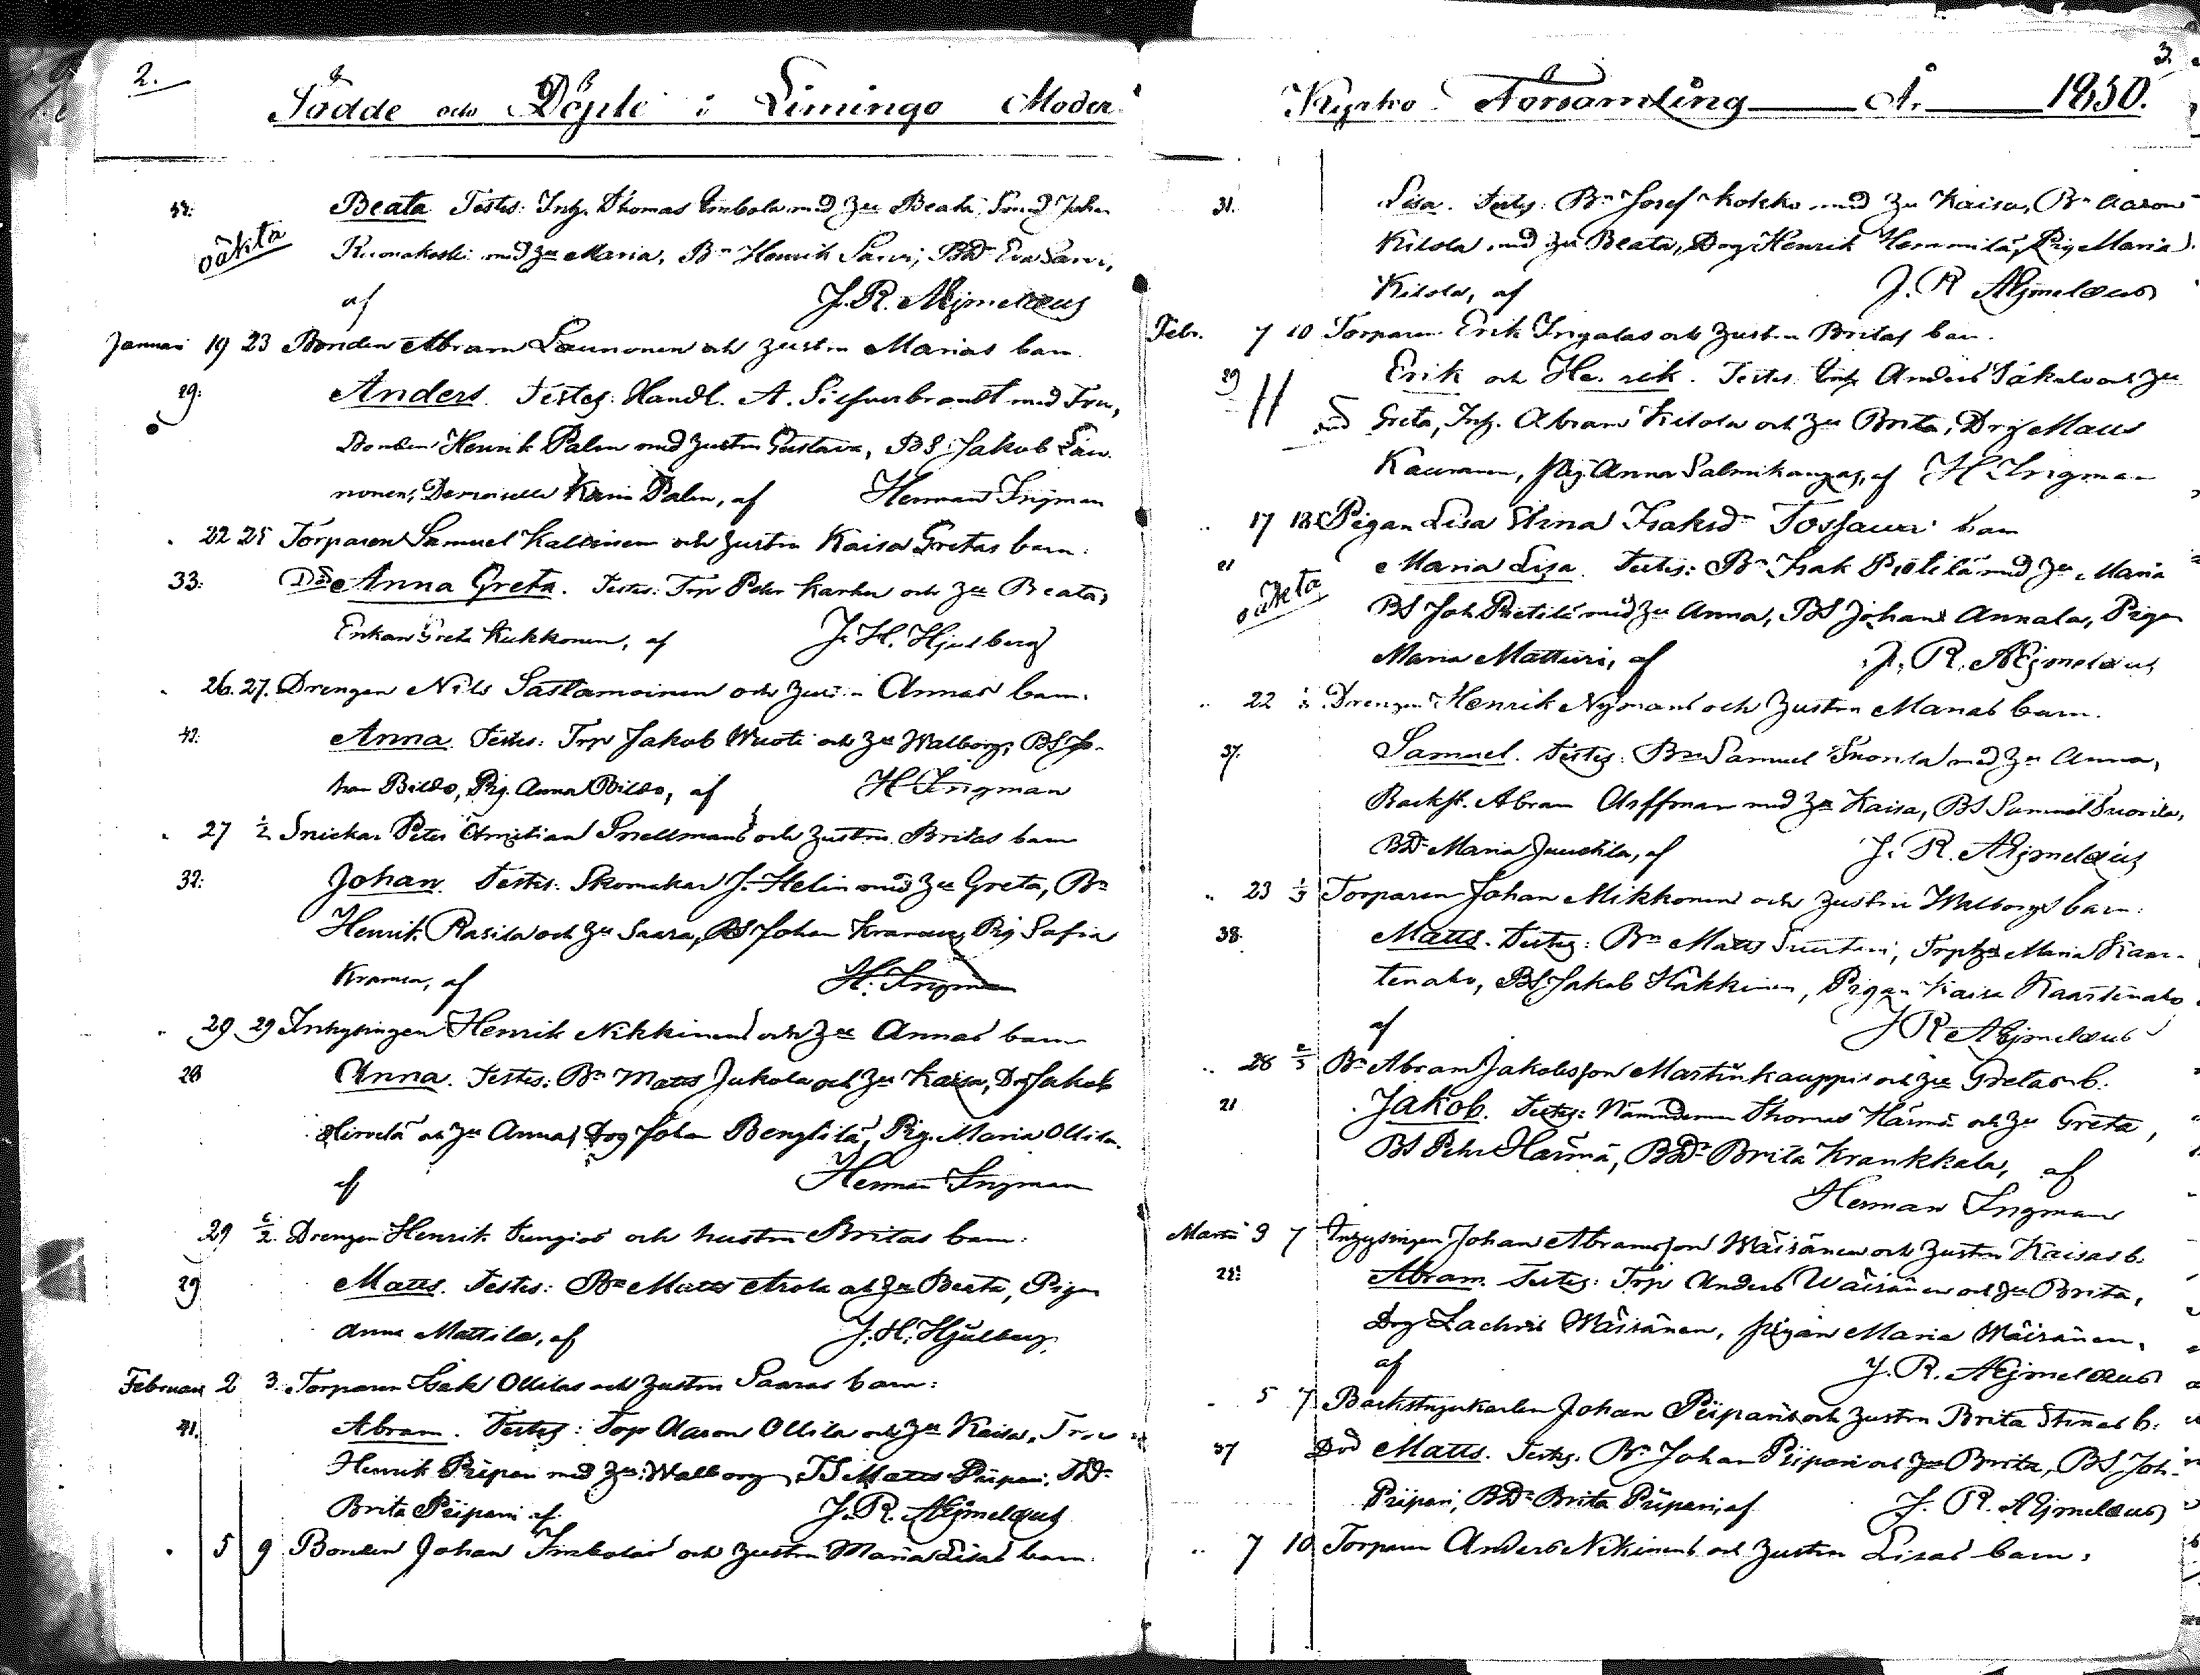 2.
Födde och Döpte i Limingo Moder
42. Beata Testes: Inh. Thomas Imbola med Hu Beata, Smed Johan
oäkta Ruonakoski med Hu Maria, Bn Henrik Sarvi, BDr Eva Sarvi,
af J. R. Aejmelæus
Januari 19 23 Bonden Abram Launonen och hustrn Marias barn
29. Anders. Testes: Handl. A. Silfverbrandt med Fru,
Bonden Henrik Palm med hustrn Gustava, BS Jakob Lau
nonen, Demoiselle Karin Palm, af Herman Ingman
22 25 Torparen Samuel Kallinen och hustrn Kaisa Gretas barn:
33: Död Anna Greta. Testes: Trp Pehr Karhu och Hu Beata,
Enkan Greta Kukkonen, af J. H. Hjulberg
26. 27. Drengen Nils Sastamoinen och hustrn Annas barn.
42. Anna. Testes: Trp Jakob Wuoti och Hu Walborg, BS Jo-
han Bildo, Pig. Anna Bildo, af H Ingman
27 1/2 Snickar Peter Christian Snellmans och hustrn Britas barn
32: Johan. Testes: Skomakar J. Helin med Hu Greta, Bn
Henrik Rasila och Hu Saara, BS Johan Kranen, Pig Safia
Kranen, af H. Ingman
29 29 Inhysingen Henrik Nikkinens och Hu Annas barn
28 Anna. Testes: Bn Matts Jukola och Hu Kaisa, Drg Jakob
Hirvelä och Hu Anna, Drg Johan Bengtilä, Pig. Maria Ollila
af Herman Ingman
29 2/2. Drengen Henrik Tungios och hustrn Britas barn:
29 Matts. Testes: Bn Matts Arola och Hu Beata, Pigan
Anna Mattila, af J. H. Hjulberg.
Februari 2 3. Torparen Isak Ollilas och hustrn Saaras barn:
41. Abram. Testes: Torp Aaron Ollila och Hu Kaisa, Trp
Henrik Piipari med Hu Walborg, TS Matts Piipari, TDr
Brita Piipari af J. R. Aejmelæus
5 9 Bonden Johan Imbolas och hustrn Maria Lisas barn.
3.
Kyrko Församling A. 1850.
31. Lisa. Testes: Bn Josef Kokko med Hu Kaisa, Bn Aaron
Kitola med Hu Beata, Dreng Henrik Hemmilä, Pig Maria
Kitola, af J. R Aejmelæus
Febr. 7 10 Torparen Erik Ingalas och hustrn Britas barn.
29 Erik och Henrik. Testes: Inh Anders Jakola och Hu
Greta, Inh. Abram Kitola och Hu Brita, Drg Matts
Kauranen, Pig Anna Salmikangas, af H. Ingman
17 18 Pigan Lisa Stina Isaksdr Tossavas barn
21 Maria Lisa. Testes: Bn Isak Pietilä med Hu Maria
oäkta BS Joh Pietilä med Hu Anna, BS Johan Annala, Pigan
Maria Matturi, af J. R. Aejmelæus
22 1/3 Drengen Henrik Nymans och hustrn Marias barn.
37. Samuel. Testes: Bn Samuel Suorsa med Hu Anna,
Backst. Abram Alffman med Hu Kaisa, BS Samuel Suorsa,
BDr Maria Juuskila, af J. R. Aejmelæus
23 1/3 Torparen Johan Mikkonens och hustrn Walborgs barn:
38. Matts. Testes: Bn Matts Suutari, TrpHu Maria Kaar-
tenaho, BS Jakob Häkkinen, Pigan Kaisa Kaartenaho
af J R Aejmelæus
28 2/3 Bn Abram Jakobsson Martinkauppis och Hu Gretas b.
21 Jakob. Testes: Nämndeman Thomas Härmä och Hu Greta,
BS Pehr Härmä, BDr Brita Krankkala, af
Herman Ingman
Martii 3 7 Inhysingen Johan Abramsson Wäisänen och hustrn Kaisas b.
28: Abram. Testes: Trp Anders Wäisänen och Hu Brita,
Drg Zachris Wäisänen, Pigan Maria Wäisänen,
af J. R. Aejmelæus
5 7 Backstugukarlen Johan Piiparis och hustrn Brita Stinas b:
37 Död Matts. Testes. Bn Johan Piipari och Hu Brita, BS Joh.
Piipari, BDr Brita Piipari, af J. R. Aejmelæus
7 10 Torparen Anders Nikinens och hustrn Lisas barn: